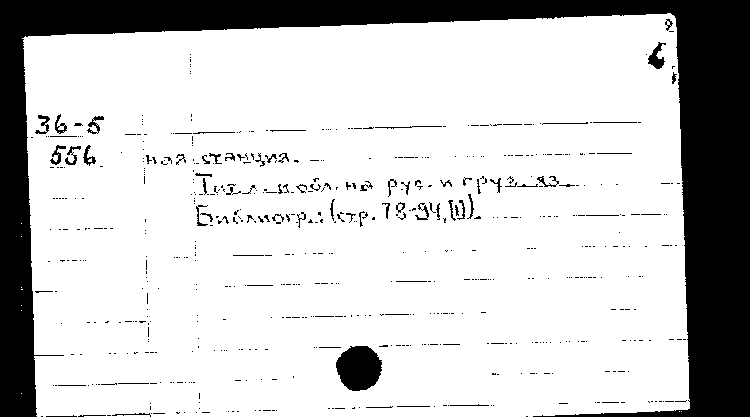 2
36-5
556 ная станция.
Титл. и обл. на рус. и груз. яз.
Библиогр.: (стр. 78-94, [1]).